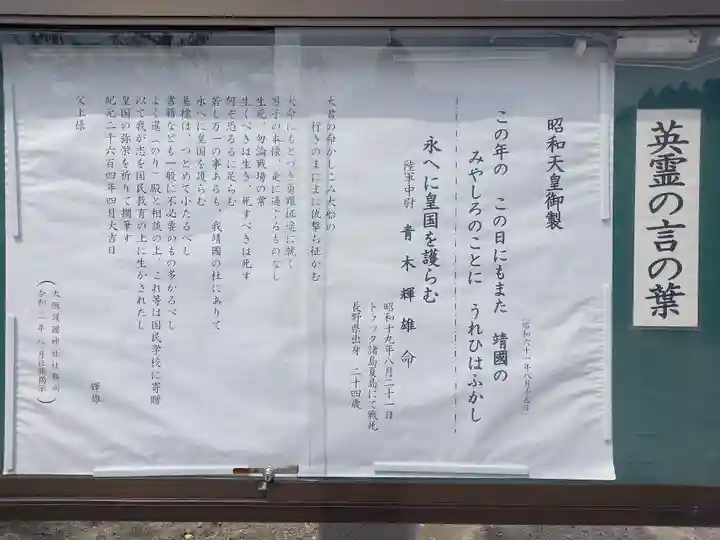 英霊の言の葉
昭和天皇御製
(昭和六十一年八月十五日)
この年の この日にもまた 靖國の
みやしろのことに うれひはふかし
永へに皇国を護らむ
陸軍中尉 青木輝雄命
昭和十九年八月二十一日
トラック諸島夏島にて戦死
長野県出身 二十四歳
大君の命かしこみ大船の
行きのまにまに仇撃ち征かむ
大命にもとづき勇躍征途に就く
男子の本懐、是に過ぐるものなし
生死、勿論戦場の常
生くべきは生き、死すべきは死す
何ぞ恐るるに足らむ
若し万一の事あるも、我靖國の杜にありて
永へに皇国を護らむ
墓標は、つとめて小たるべし
書籍なども一般に不必要のもの多かるべし
よく選(のり)殿と相談の上、これ等は国民学校に寄贈
以て我が志を国民教育の上に生かされたし
皇国の弥栄を祈りて擱筆す
紀元二千六百四年四月大吉日
輝雄
父上様
(大阪護國神社社務所
令和二年 八月社頭掲示)